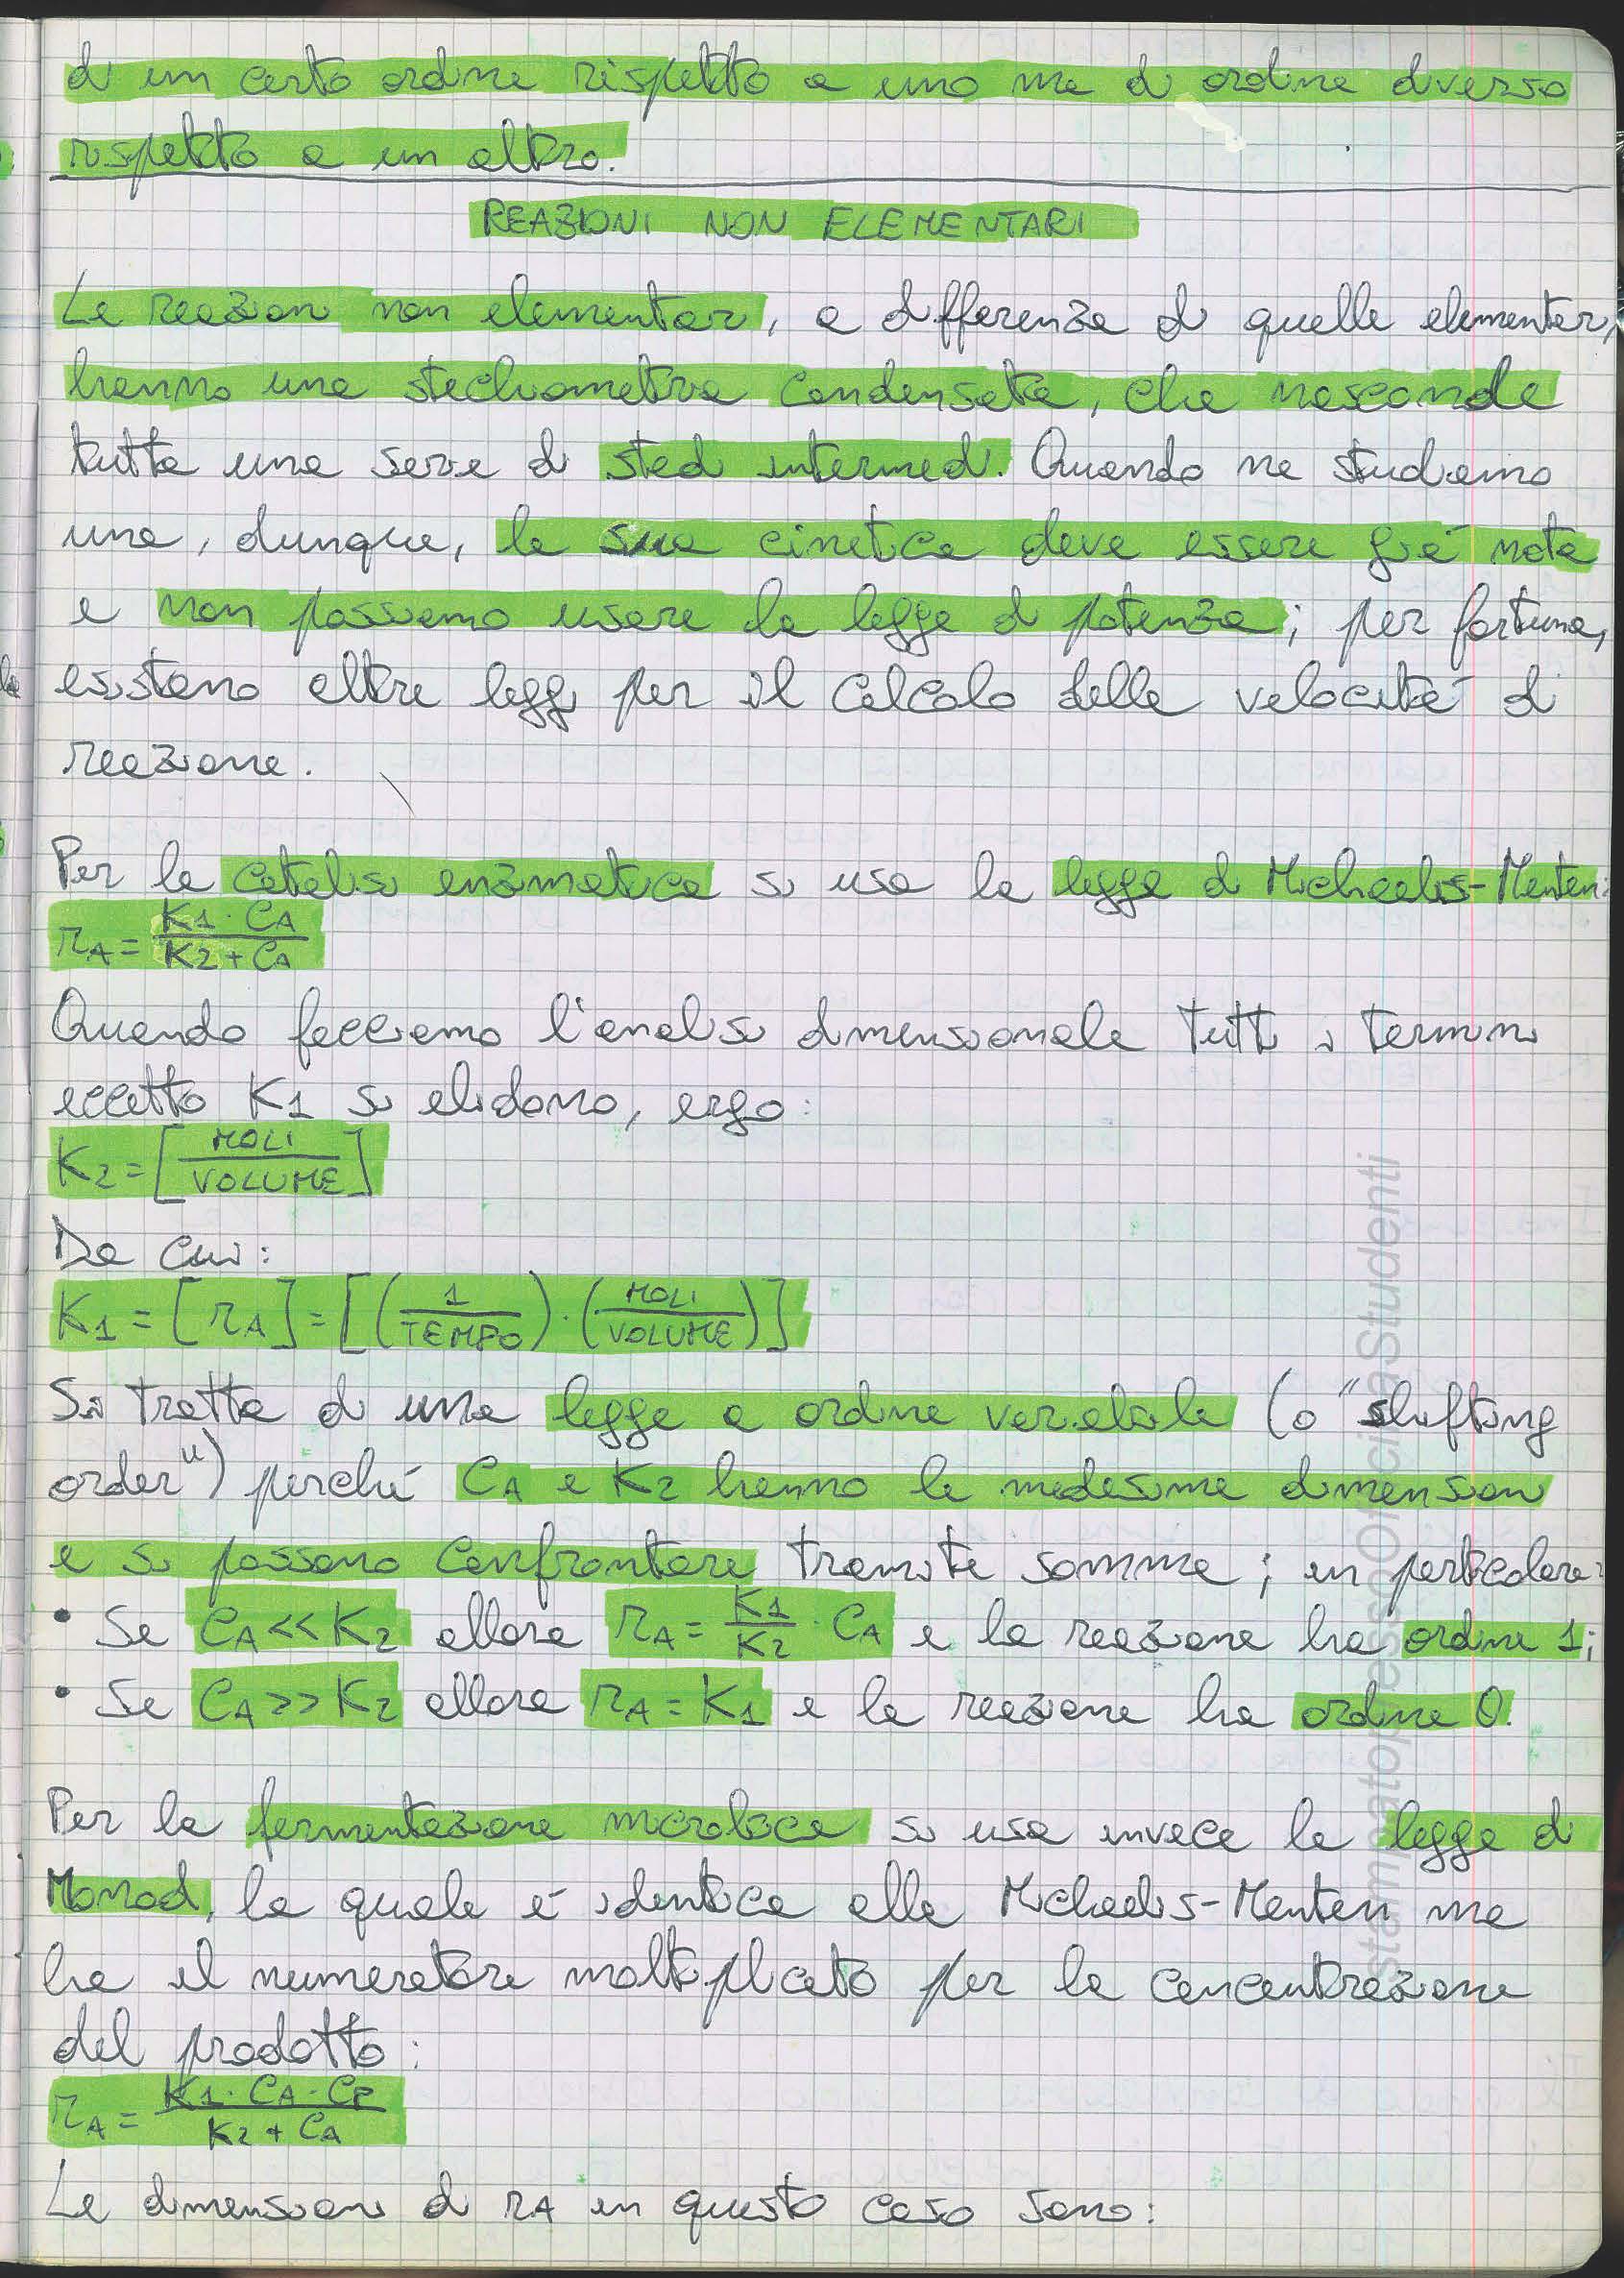 di un certo ordine rispetto a uno ma di ordine diverso
rispetto a un altro.
REAZIONI NON ELEMENTARI
Le reazioni non elementari, a differenza di quelle elementari,
hanno una stechiometria condensata, che nasconde
tutta una serie di stadi intermedi. Quando ne studiamo
una, dunque, la sua cinetica deve essere già nota
e non possiamo usare la legge di potenza; per fortuna,
esistono altre leggi per il calcolo della velocità di
reazione.
Per la catalisi enzimatica si usa la legge di Michaelis-Menten:
rA = K1 · CA / K2 + CA
Quando facciamo l'analisi dimensionale tutti i termini
eccetto K1 si elidono, ergo:
K2 = [MOLI / VOLUME]
Da cui:
K1 = [rA] = [(1 / TEMPO) · (MOLI / VOLUME)]
Si tratta di una legge a ordine variabile (o "shifting
order") perché CA e K2 hanno le medesime dimensioni
e si possono confrontare tramite somma; in particolare:
• Se CA << K2 allora rA = K1 / K2 · CA e la reazione ha ordine 1;
• Se CA >> K2 allora rA = K1 e la reazione ha ordine 0.
Per la fermentazione microbica si usa invece la legge di
Monod, la quale è identica alla Michaelis-Menten ma
ha il numeratore moltiplicato per la concentrazione
del prodotto:
rA = K1 · CA · CP / K2 + CA
Le dimensioni di rA in questo caso sono:
stampatopressoOfficinaStudenti